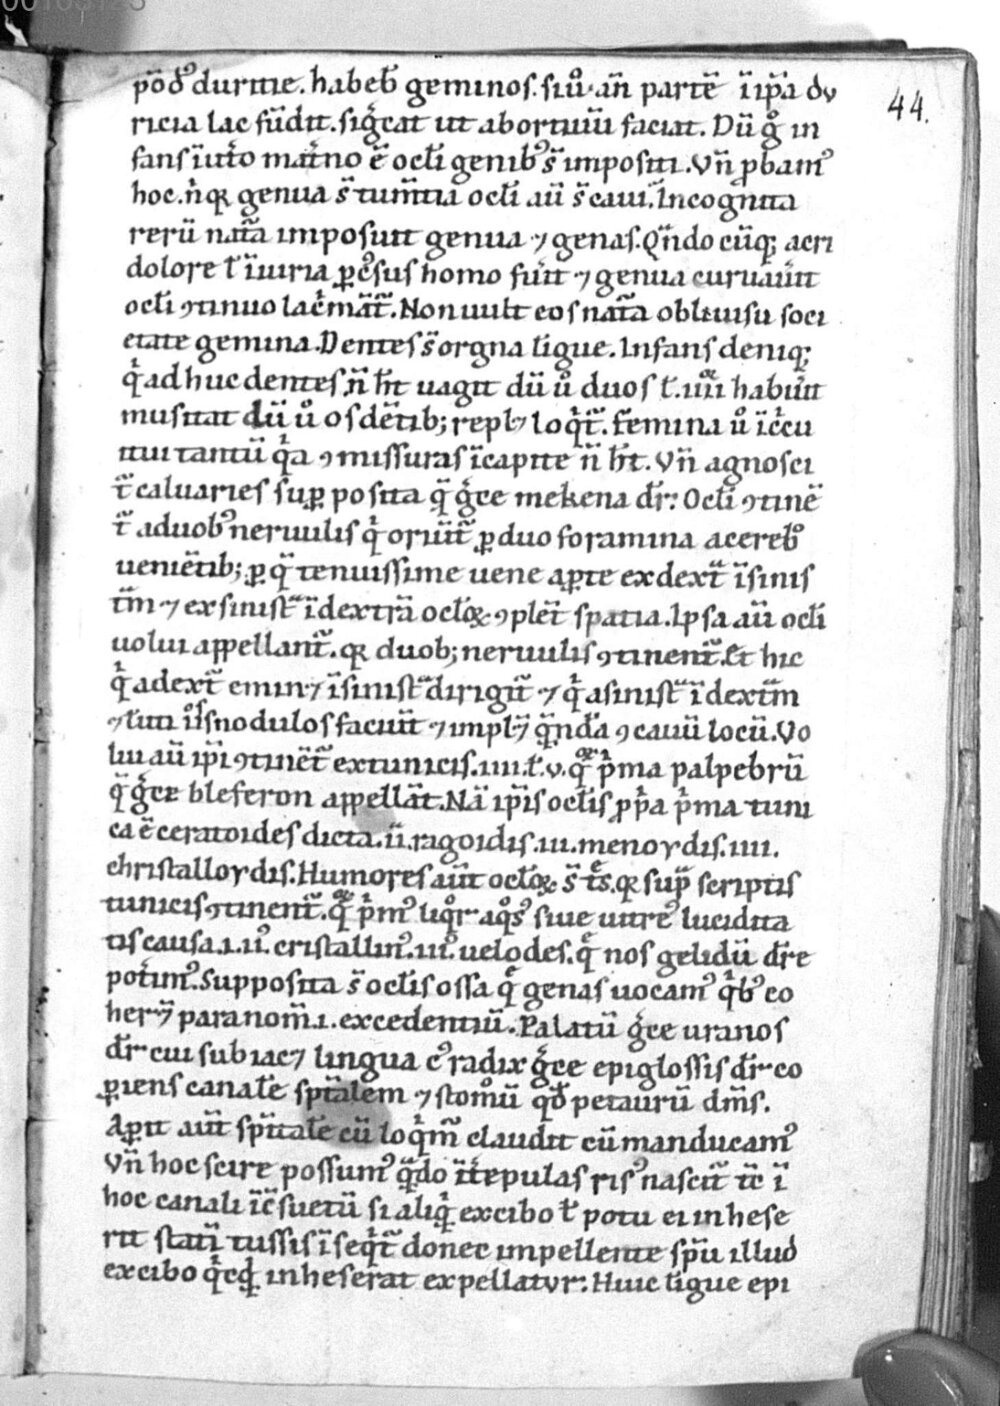 00105123
44.
põdꝰ duritie. habeb̄ geminos. siu̾ an̄ partē īip̄a du
ricia lac fūdit. sigͥcat ut abortiuū faciat. Dū gͦ in
fans īutͦo matͥno ē ocl̄i genibꝰ s̄ impositi. Vn̄ ꝓbamꝰ
hoc. nͥqꝫ genua s̄ tum̄tia ocl̄i aū s̄ caui. Incognita
rerū nat̄a imposuit genua ⁊ genas. Qn̄do cūqꝫ acri
dolore ł īiuria ꝑcͨsus homo fūit ⁊ genua curuaūit
ocl̄i ꝯtinuo lacͥmāt̄. Non uult eos nat̄a obliuisu soci
etate gemina. Dentes s̄ orgna līgue. Infans deniqꝫ
qͥ adhuc dentes n̄ ħt uagit dū u̾ duos ł .iiii habūit
musitat dū u̾ os dētibꝫ replꝫ loqͥt̄. femina u̾ īcͥcu
itui tantū qͥa ꝯmissuras īcapite n̄ ħt. Vn̄ agnosci
t̄ caluaries suꝑ posita q̄ gͨce mekena dr̄: Ocl̄i ꝯtinē
t̄ aduobꝰ neruulis qͥ oriūt̄ ꝑ duo foramina acerebͦ
ueniētibꝫ ꝑ q̄ tenuissime uene aꝑte ex dext̄ īsinis
t̄m ⁊ ex sinist̄ īdextrā ocl̄oꝝ ꝯplēt spatia. Ipsa aū ocl̄i
uolui appellant̄. qꝫ duobꝫ neruulis ꝯtinent̄. Et hic
qͥ adext̄ emin⁊ īsinist̄ dirigit̄ ⁊ qͥ asinist̄ īdext̄m
nodulos faciūt ⁊ implꝫ q̄nd̄a ꝯcauū locū. Vo
lui aū ip̄i ꝯtinēt̄ ex tunicis .iiii. ł .v. qͣꝝ pͥma palpebrū
q̄ gͨce bleferon appellāt. Nā ip̄is ocl̄is ꝓp̄a pͥma tuni
ca ē ceratoides dicta. ii. ragoidis. iii. menoydis. iiii.
christalloydis. Humores aūt ocl̄oꝝ s̄ tͤs. qꝫ sup̄ scriptis
tunicis ꝯtinent̄. qͣꝝ pͥmꝰ liqͦr aqͦsꝰ siue uitreꝰ lucidita
tis causa .i. iiꝰ. cristallinꝰ. iiiꝰ. uelodes. qͤ nos gelidū dr̄e
potͥmꝰ. Supposita s̄ ocl̄is ossa qͤ genas uocamꝰ qͥbꝰ co
herꝫ paranom̄ .i. excedentiū. Palatū gͨce uranos
dr̄ cui subiacꝫ lingua cꝰ radix gͨce epiglossis dr̄ co
ꝑiens canale sp̄italem ⁊ stom̄u qͦd petaurū dm̄s.
Aꝑit aūt sp̄itale cū loqͥm̄ claudit cū manducamꝰ
Vn̄ hoc scire possumꝰ qͣdo īt̄ epulas risꝰ nascit̄ tc̄ ī
hoc canali īc̄suetū si aliqͥd excibo ł potu ei inhese
rit statī tussis īseqͥt̄ donec impellente sp̄u illud
excibo qͥcqͥd inheserat expellatur: Huic līgue epi